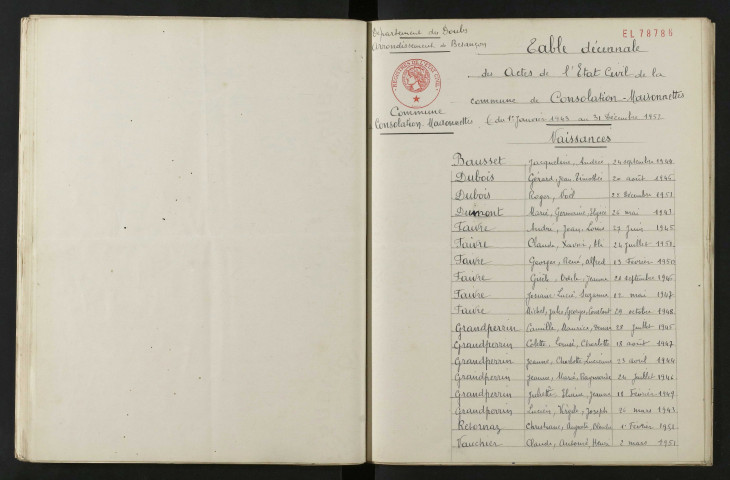 Département du Doubs
Arrondissement de Besançon
EL 78786
Table décennale
des Actes de l'Etat Civil de la
commune de Consolation-Maisonnettes
Commune
Consolation-Maisonnettes
(du 1er Janvier 1943 au 31 Décembre 1952
Naissances
Bausset Jacqueline, Andrée 24 septembre
Dubois Gérard, Jean, Timothée 20 août 1945
Dubois Roger, Noël 22 décembre 1951
Dumont Marie, Germaine 26 mai 1943
Faivre André, Jean, Louis 23 Juin 1945
Faivre Claude, Xavier 24 Juillet
Faivre Georges, René, Alfred 13 Février 1950
Faivre Gisèle, Odile, Jeanne septembre 1946
Faivre Josiane, Lucie, Suzanne 12 mai 1947
Faivre Michel, Jules, Georges, Constant 28 octobre 1948
Grandperrin Camille, Maurice 28 Juillet 1945
Grandperrin Colette, Louise, Charlotte 18 août 1947
Grandperrin Jeanne, Charlotte, Lucienne 23 avril 1944
Grandperrin Jeanne, Marie, Raymonde 24 Juillet 1946
Grandperrin Juliette Jeanne 18 Février 1949
Grandperrin Lucien, Virgile, Joseph 26 mars 1943
Retornaz Auguste 1er Février
Vauchier Claude, Antoine, Henri 2 mars 1951